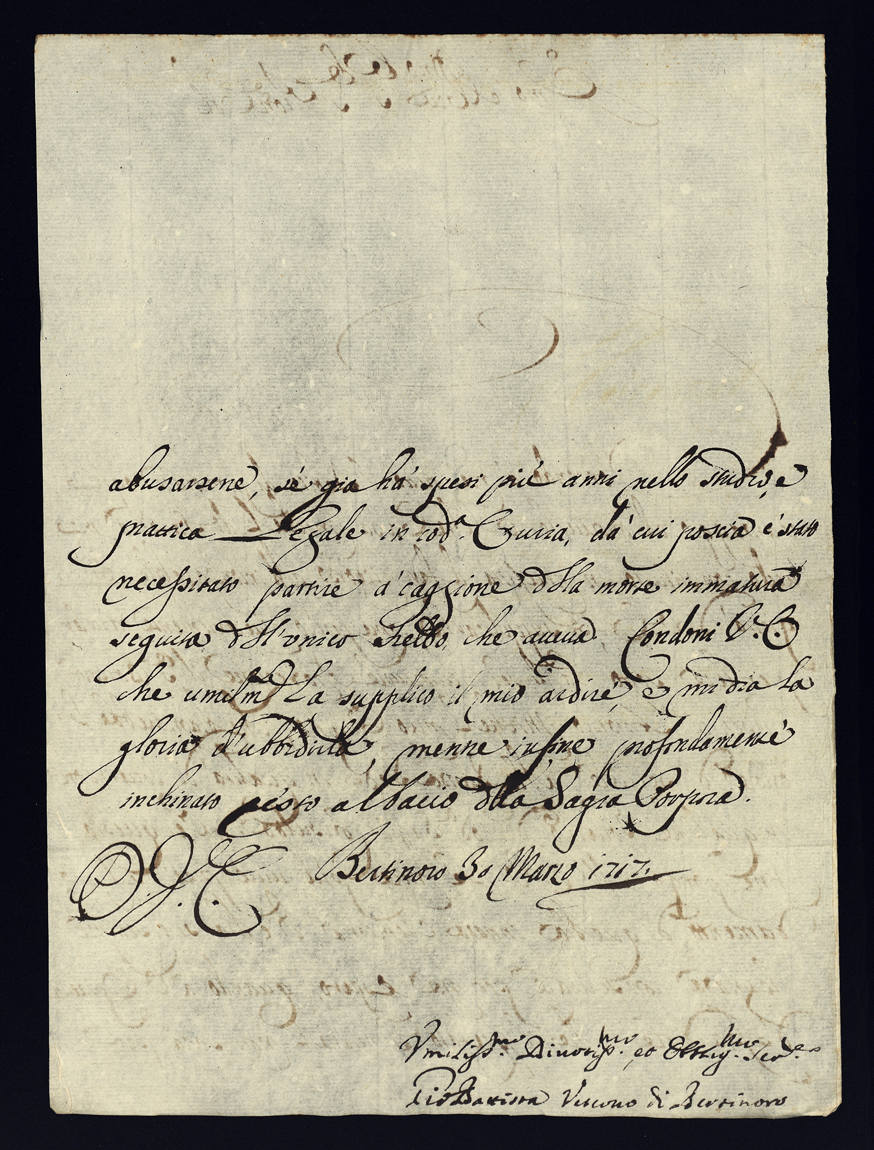 abusarsene, sè già há spesi più anni nello studio, e
prattica Legale in cod.ᵃ Curia, dá cui poscia é stato
necessitato partire á caggione dlla morte immatura
seguita dll'unico fratello, che aueua. Condoni V. E.
che umilm.ᵉ La supplico il mio ardire, e mi dia la
gloria d'ubbidirla, mentre in fine profondamente
inchinato resto al bacio dlla Sagra Porpora.
D. V. E. Bertinoro 30 Marzo 1717.
Vmiliss.ᵐᵒ Diuotiss.ᵐᵒ et Obblig.ᵐᵒ Ser.ʳᵉ
Gio Battista Vescouo di Bertinoro